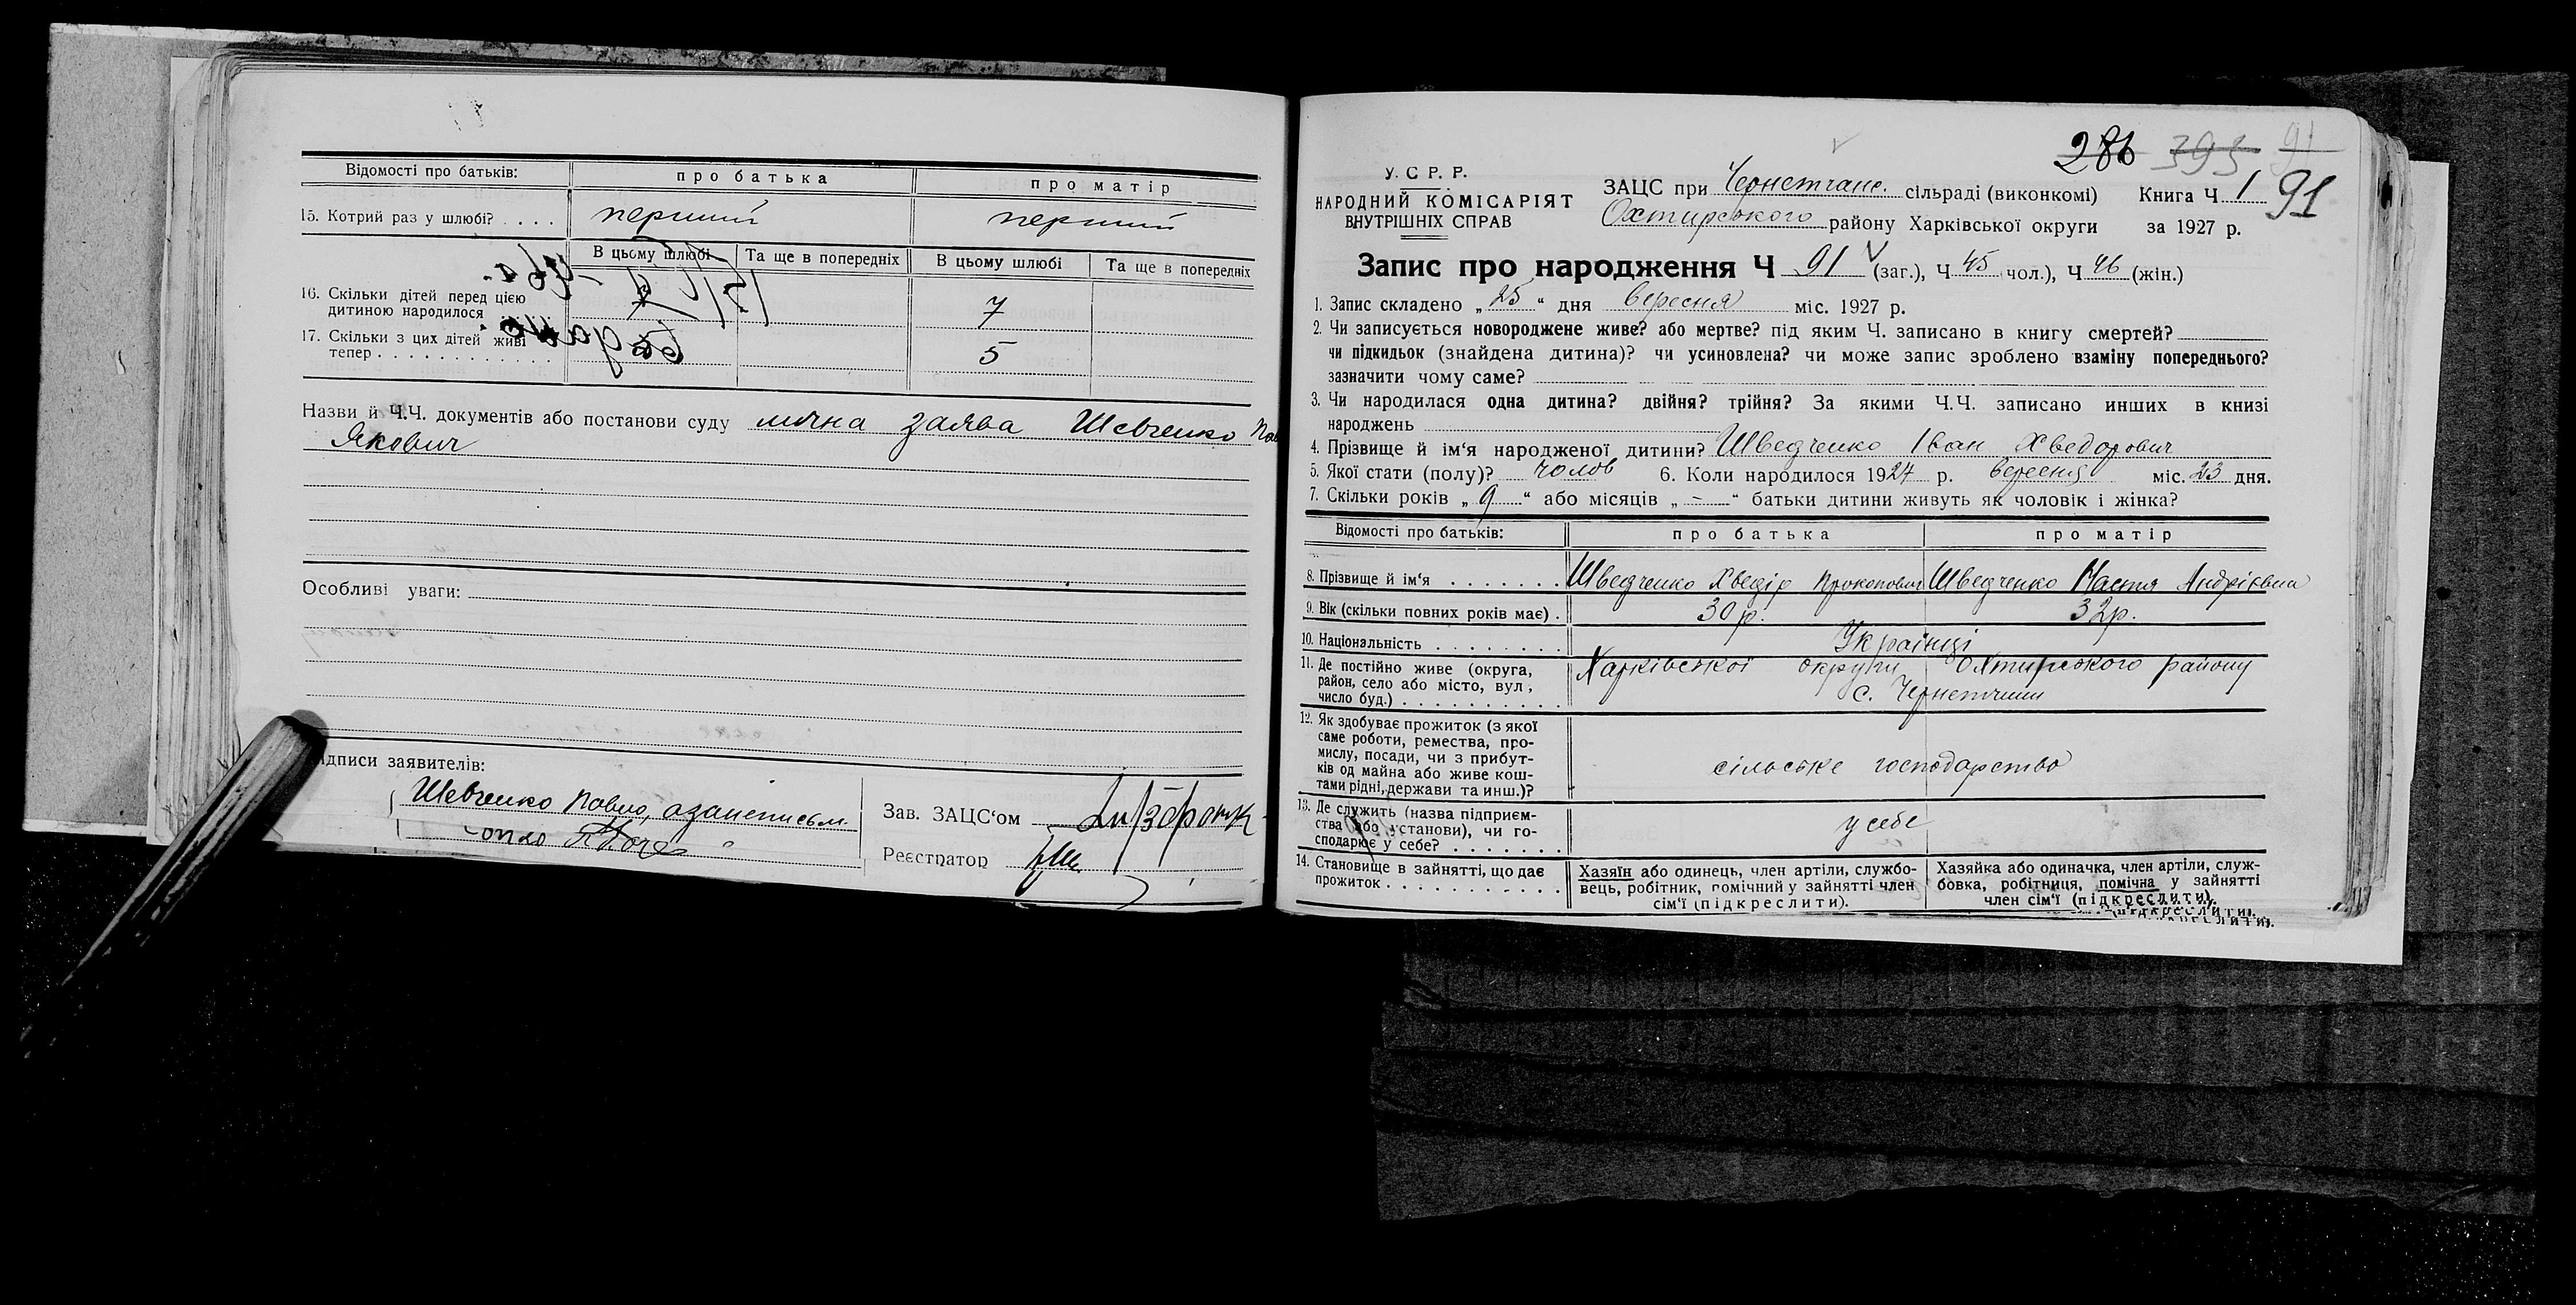 Відомості про батьків: про батька про матір
15. Котрий раз у шлюбі? . . . . перший перший
В цьому шлюбі Та ще в попередніх В цьому шлюбі Та ще в попередніх
16. Скільки дітей перед цією
дитиною народилося 7
17. Скільки з цих дітей живі
тепер . . . . . . . . . . . . . 5
Назви й Ч.Ч. документів або постанови суду лична заява Шевченко Пав
Якович
Особливі уваги:
ідписи заявителів:
Шевченко Павло, а за неписьм.
Зав. ЗАЦС'ом
Реєстратор
286 393 91
91
У. С. Р. Р.
НАРОДНИЙ КОМІСАРІЯТ
ВНУТРІШНІХ СПРАВ
ЗАЦС при Чернетчанс. сільраді (виконкомі) Книга Ч 1
Охтирського району Харківської округи за 1927 р.
Запис про народження Ч 91 (заг.), Ч 45 чол.), Ч 46 (жін.)
1. Запис складено „ 25 “ дня вересня міс. 1927 р.
2. Чи записується новороджене живе? або мертве? під яким Ч. записано в книгу смертей?
чи підкидьок (знайдена дитина)? чи усиновлена? чи може запис зроблено взаміну попереднього?
зазначити чому саме?
3. Чи народилася одна дитина? двійня? трійня? За якими Ч.Ч. записано инших в книзі
народжень
4. Прізвище й ім'я народженої дитини? Шведченко Іван Хведорович
5. Якої стати (полу)? чолов 6. Коли народилося 1927 р. вересня міс. 23 дня.
7. Скільки років „ 9 “ або місяців „ – “ батьки дитини живуть як чоловік і жінка?
Відомості про батьків: про батька про матір
8. Прізвище й ім'я . . . . . . . Шведченко Хведір Прокопович Шведченко Настя Андріївна
9. Вік (скільки повних років має) . 30 р. 32 р.
10. Національність . . . . . . . . Українці
11. Де постійно живе (округа, Харківської округи Охтирського району
район, село або місто, вул., с. Чернетчини
число буд.) . . . . . . . . . .
12. Як здобуває прожиток (з якої
саме роботи, ремества, про-
мислу, посади, чи з прибут-
ків од майна або живе кош- сільське господарство
тами рідні, держави та инш.)?
13. Де служить (назва підприєм-
ства або установи), чи го- у себе
сподарює у себе? . . . . . . .
14. Становище в зайнятті, що дає
прожиток . . . . . . . . . . .
Хазяїн або одинець, член артіли, службо-
вець, робітник, помічний у зайнятті член
сім'ї (підкреслити).
Хазяйка або одиначка, член артіли, служ-
бовка, робітниця, помічна у зайнятті
член сім'ї (підкреслити).